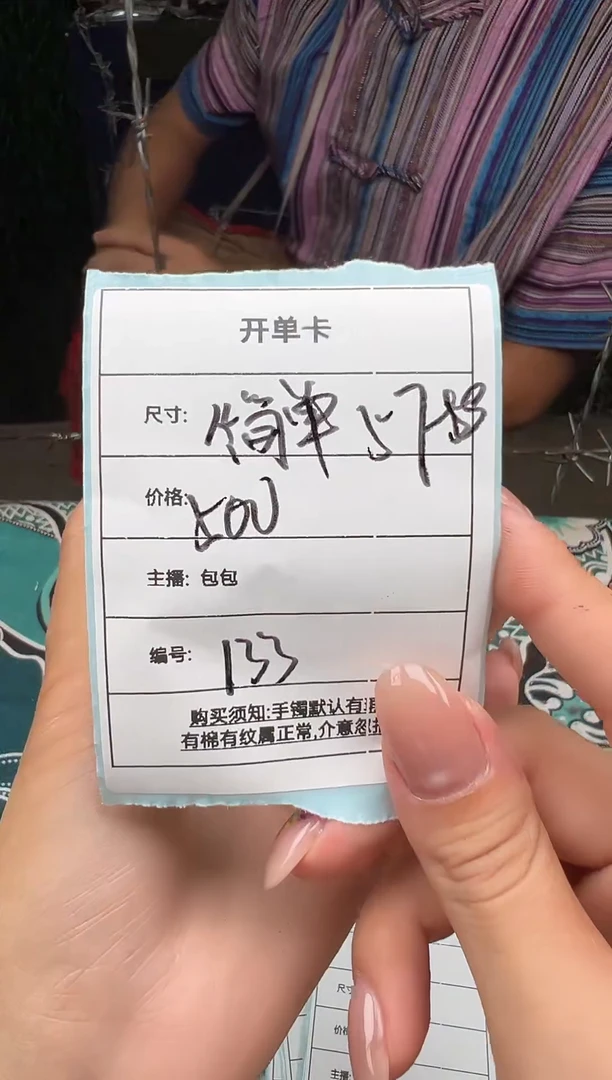 开单卡
尺寸: 简单 57-58
价格: 500
主播: 包包
编号: 133
购买须知:手镯默认有
有棉有纹属正常,介意忽拍
尺寸
价格
主播